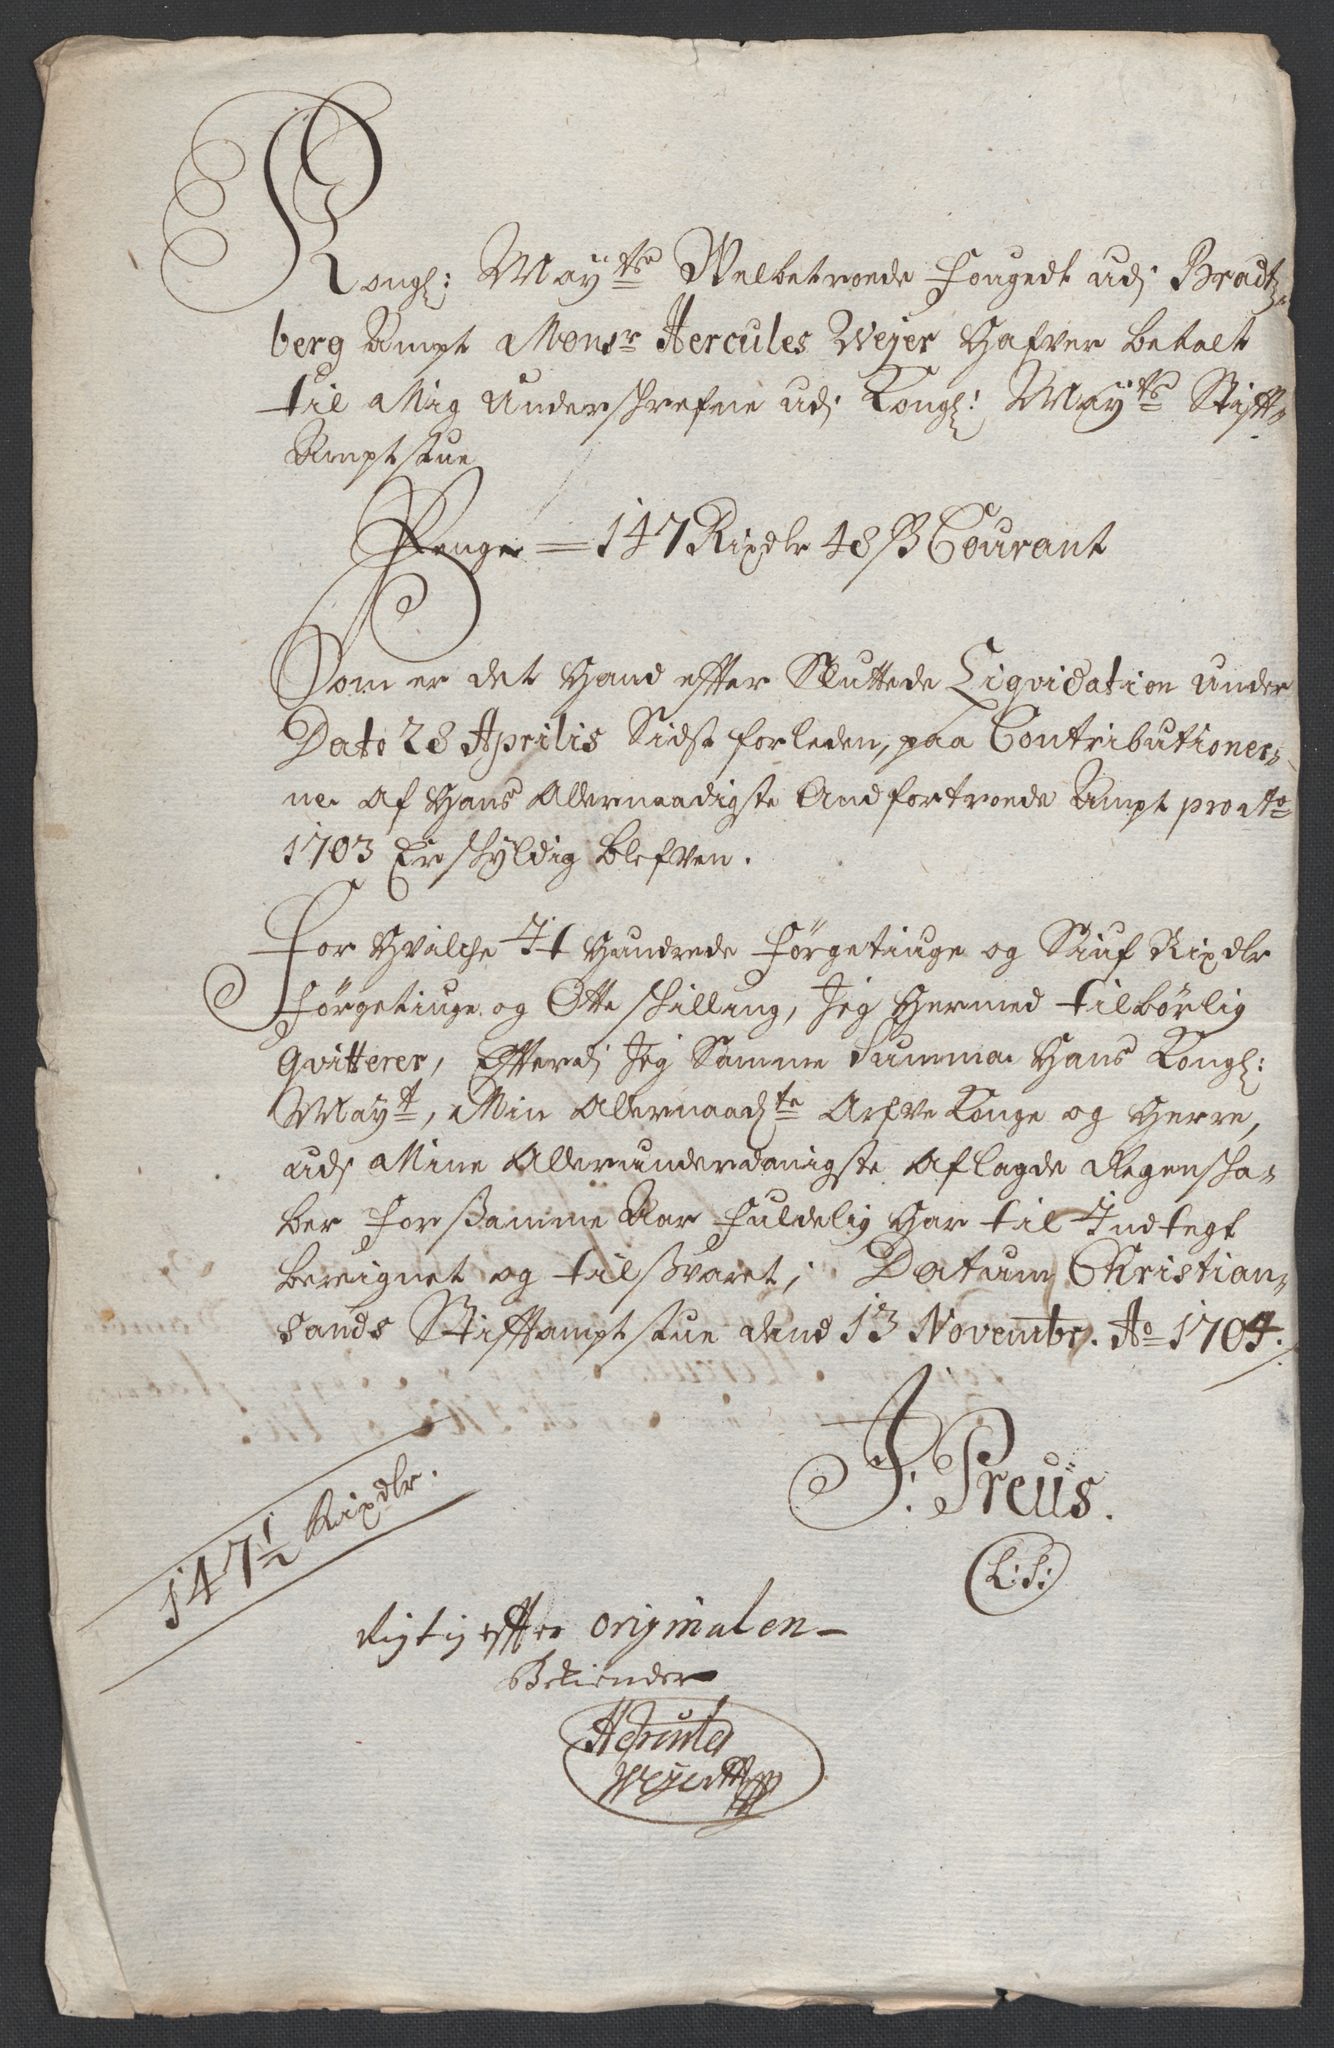 Kongl: Mayts Welbetroede Fougedt udj Bradtz-
berg Ampt Monsr Hercules Weyer Hafver betalt
til Mig Underschrefne udj Kongl: Mayts Stifft-
Amptstue
Penge = 147 Rixdlr 48 ß Courant
Som er det Hand effter Sluttede Liqvidation under
Dato 28 Aprilis Sidst forleden, paa Contributioner-
ne af Hans Allernaadigste Andfortroede Ampt pro Ao
1703 Er schyldig blefven.
For Hvilche It Hundrede Førgetiuge og Siuf Rixdlr
Førgetiuge og Otte schilling, Jeg Hermed tilbørlig
Qvitterer, Efferdj Jeg Samme Summa Hans Kongl:
Mayt, Min Allernaadte Arfve Konge og Herre,
udj Mine Allerunderdanigste Aflagde Regenscha-
ber For ßamme Aar Fuldelig Har til Indtegt
bereignet og tilßvaret, Datum Christian-
sands Stifftamptstue dend 13 Novembr. Ao 1704.
J: Preus.
L:S:
147 1/2 Rixdlr.
Rigtig effter originalen
Bekiender
Hercules
Weyer